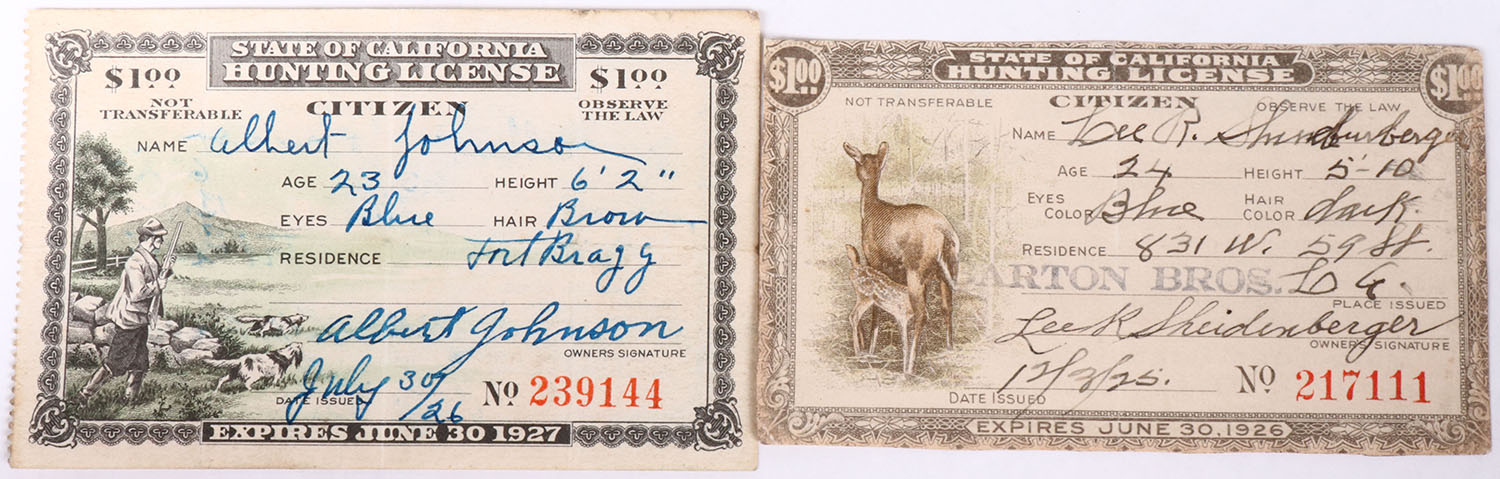 STATE OF CALIFORNIA
HUNTING LICENSE
$1.00 $1.00
NOT TRANSFERABLE CITIZEN OBSERVE THE LAW
NAME Albert Johnson
AGE 23 HEIGHT 6'2"
EYES Blue HAIR Brown
RESIDENCE Fort Bragg
Albert Johnson
OWNERS SIGNATURE
July 30/26 No 239144
DATE ISSUED
EXPIRES JUNE 30 1927
STATE OF CALIFORNIA
HUNTING LICENSE
$1.00 $1.00
NOT TRANSFERABLE CITIZEN OBSERVE THE LAW
NAME Lee R.
AGE 24 HEIGHT 5'-10
EYES COLOR Blue HAIR COLOR dark.
RESIDENCE 831 W. 59 St.
BARTON BROS. L.A.
PLACE ISSUED
Lee R Sheidenberger
OWNERS SIGNATURE
12/3/25. No 217111
DATE ISSUED
EXPIRES JUNE 30, 1926